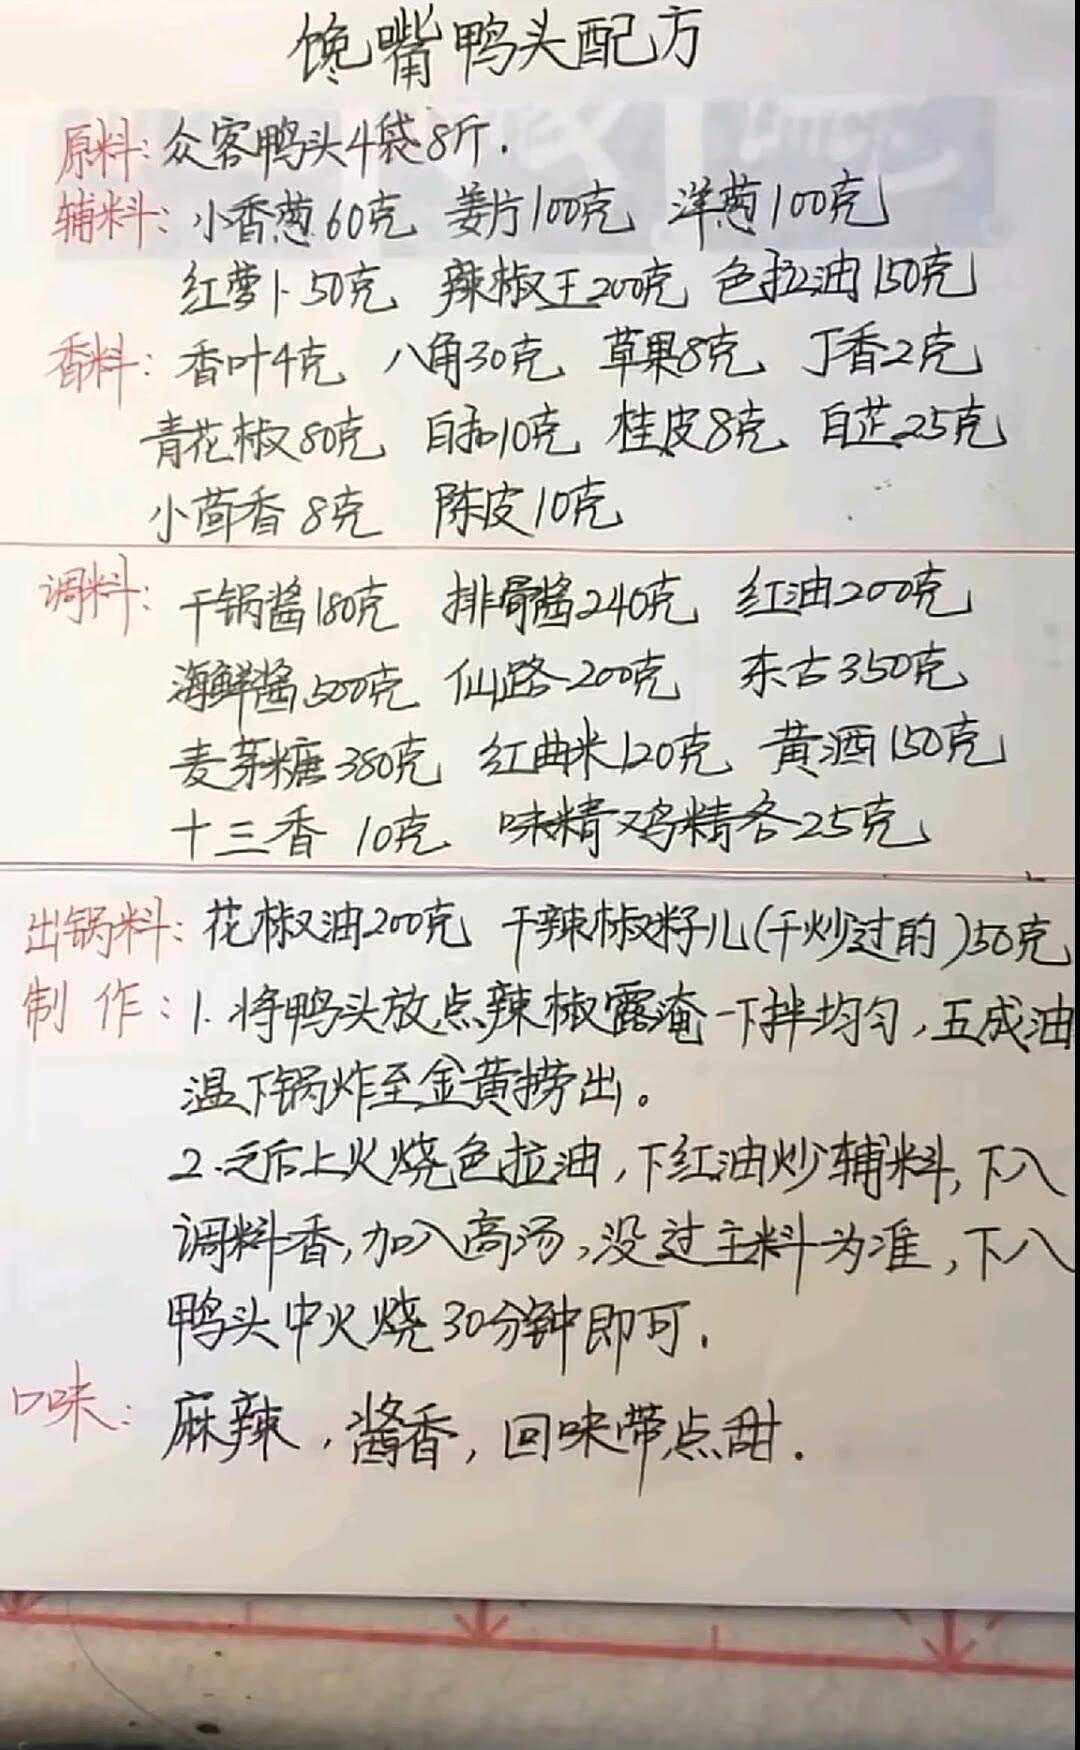 馋嘴鸭头配方
原料: 众客鸭头4袋8斤.
辅料: 小香葱60克 姜片100克 洋葱100克
红萝卜50克 辣椒王200克 色拉油150克
香料: 香叶4克 八角30克 草果8克 丁香2克
青花椒80克 白扣10克 桂皮8克 白芷25克
小茴香8克 陈皮10克
调料: 干锅酱180克 排骨酱240克 红油200克
海鲜酱500克 仙路200克 东古350克
麦芽糖380克 红曲米120克 黄酒150克
十三香 10克 味精鸡精各25克
出锅料: 花椒油200克 干辣椒籽儿(干炒过的)50克
制作: 1.将鸭头放点辣椒露淹一下拌均匀,五成油
温下锅炸至金黄捞出。
2.之后上火烧色拉油,下红油炒辅料,下入
调料香,加入高汤,没过主料为准,下入
鸭头中火烧30分钟即可.
口味: 麻辣,酱香,回味带点甜.